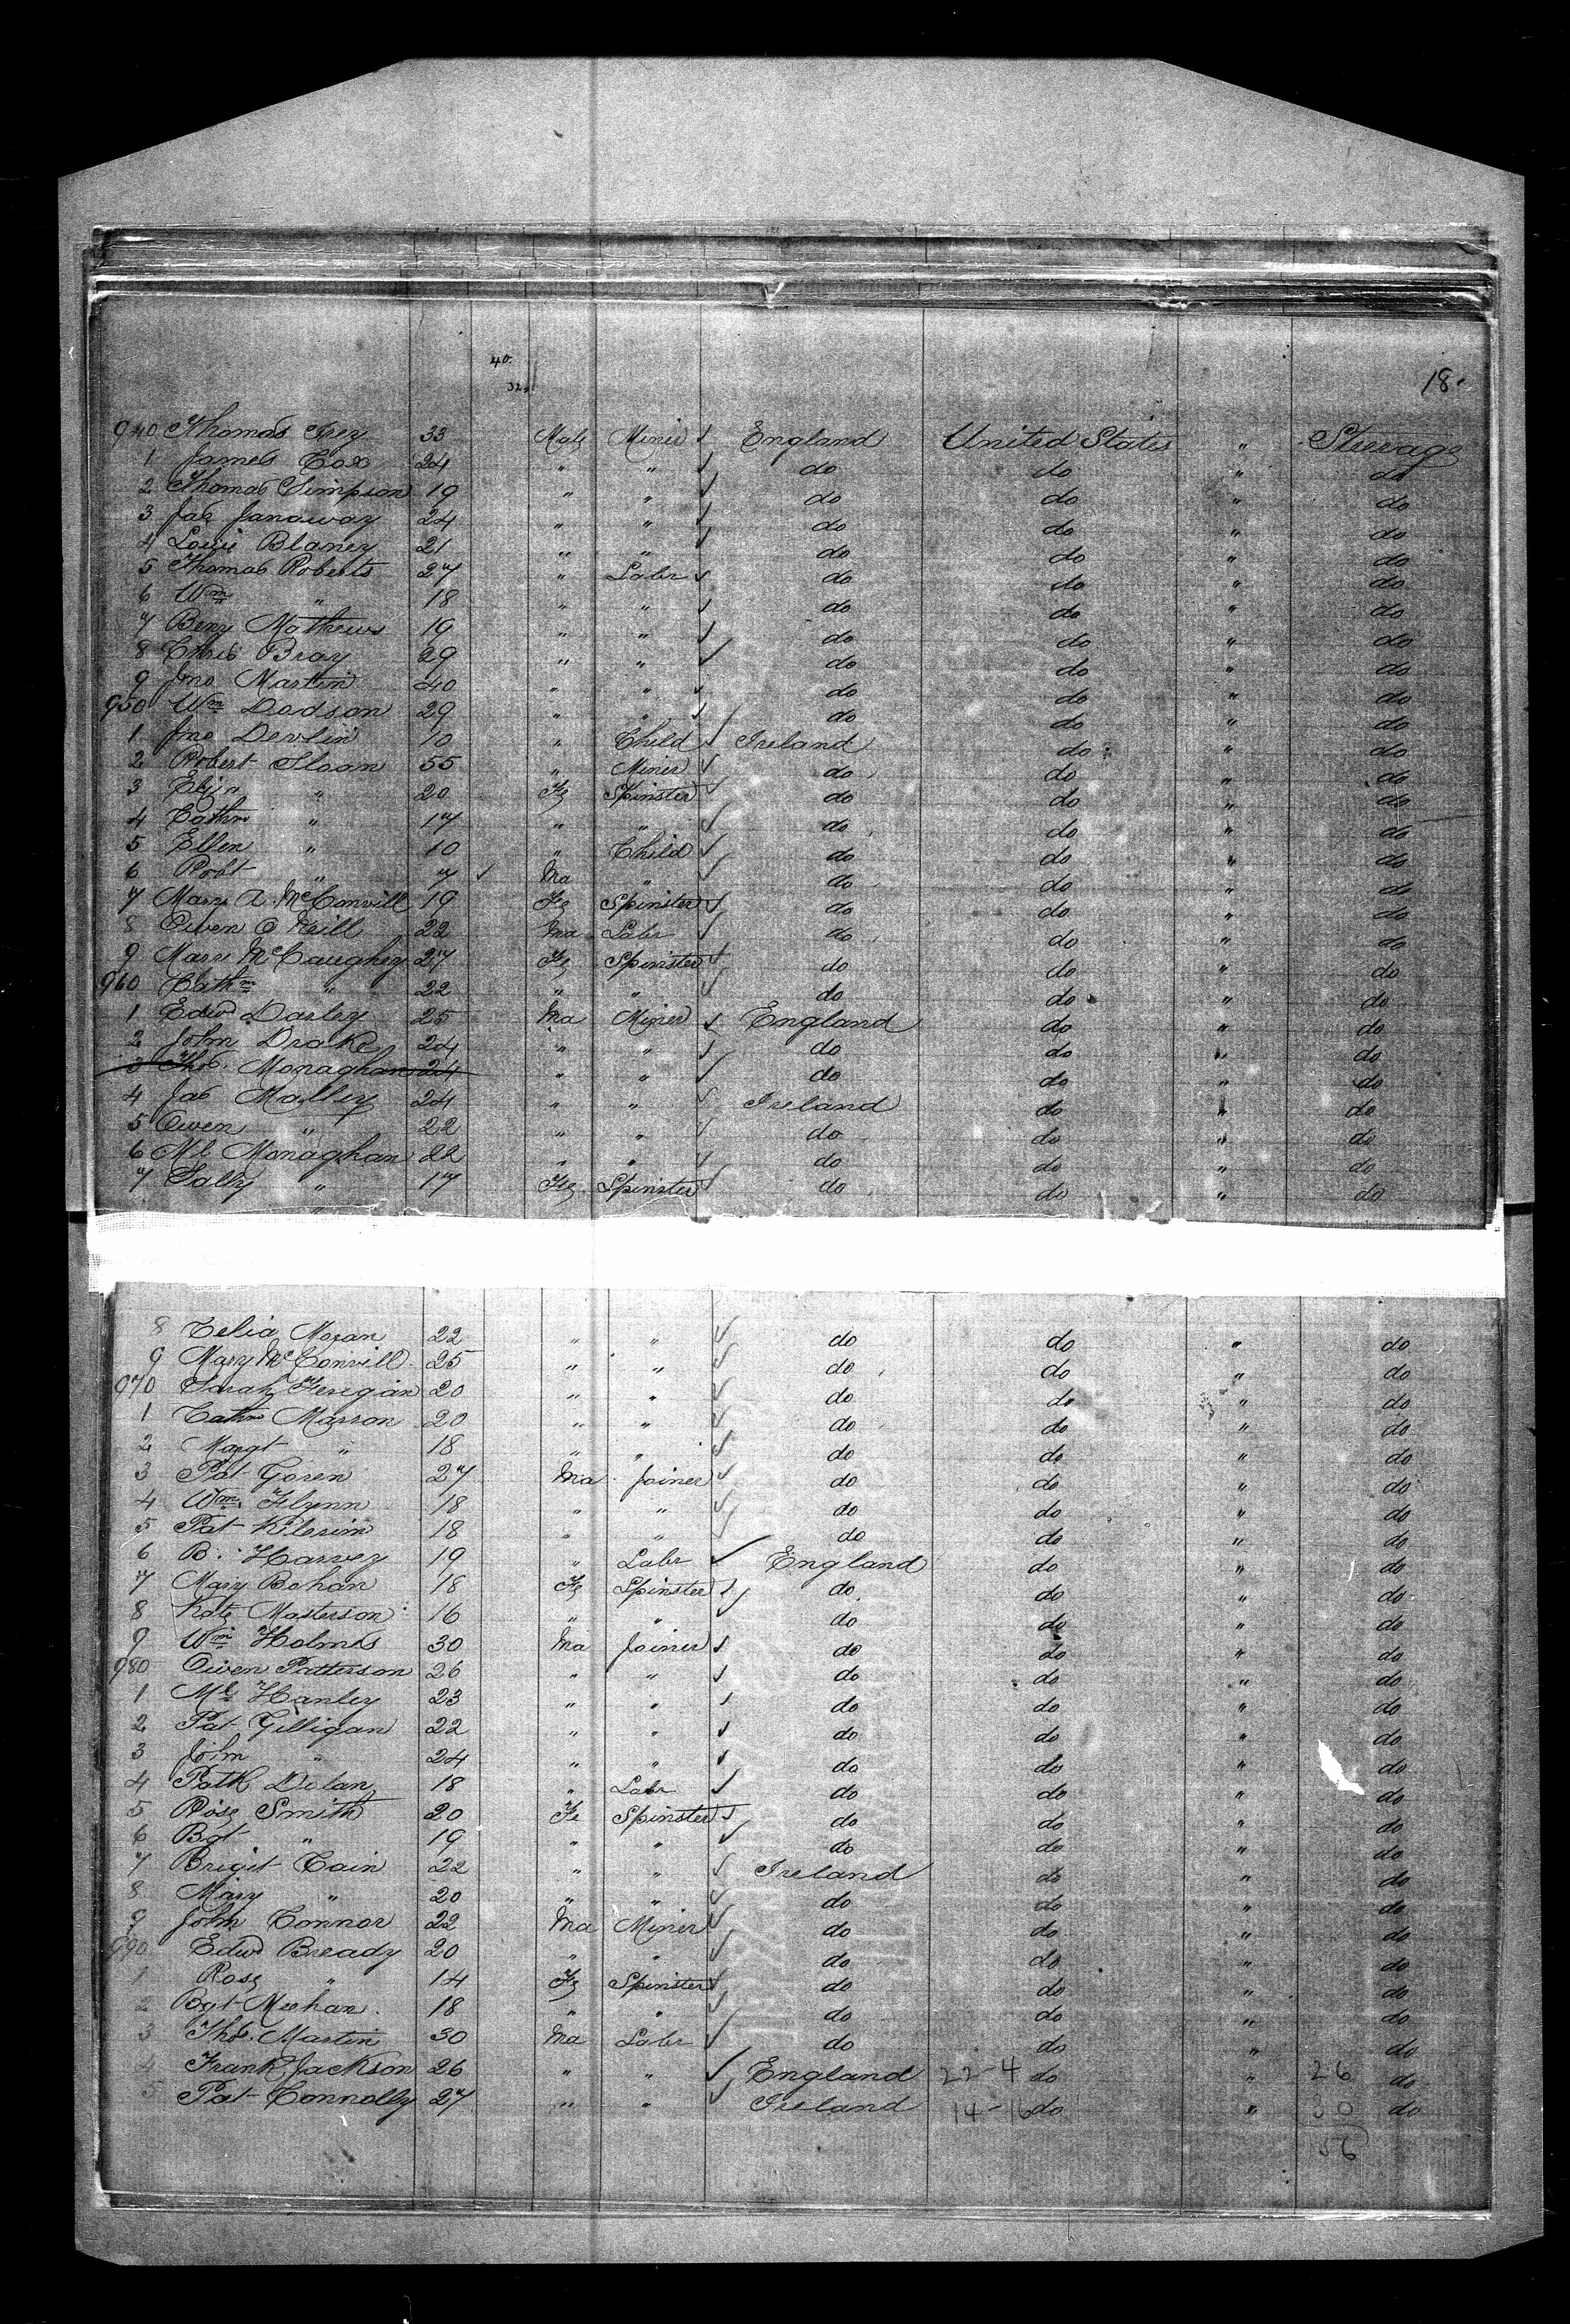 40.
32.
18.
940 Thomas Frey 33 Male Miner ✓ England United States " Steerage
1 James Cox 24 " " ✓ do do " do
2 Thomas Simpson 19 " " ✓ do do " do
3 Jas Janaway 24 " " ✓ do do " do
4 Louie Blaney 21 " " ✓ do do " do
5 Thomas Roberts 27 " Labr ✓ do do " do
6 Wm " 18 " " ✓ do do " do
7 Benj Mathews 19 " " ✓ do do " do
8 Chris Bray 29 " " ✓ do do " do
9 Jno Martin 40 " " ✓ do do " do
950 Wm Dodson 29 " " ✓ do do " do
1 Jno Devlin 10 " Child ✓ Ireland do " do
2 Robert Sloan 55 " Miner ✓ do do " do
3 Eliza " 20 Fe Spinster ✓ do do " do
4 Cathn " 17 " " ✓ do do " do
5 Ellen " 10 " Child ✓ do do " do
6 Robt " 7 ✓ Ma " ✓ do do " do
7 Mary A. McConvill 19 Fe Spinster ✓ do do " do
8 Owen O Neill 22 Ma Labr ✓ do do " do
9 Mary McCaughey 27 Fe Spinster ✓ do do " do
960 Cathn " 22 " " ✓ do do " do
1 Edwd Darley 25 Ma Miner ✓ England do " do
2 John Drake 24 " " ✓ do do " do
3 Thos. Monaghan 24 " " ✓ do do " do
4 Jas Malley 24 " " ✓ Ireland do " do
5 Owen " 22 " " ✓ do do " do
6 Ml Monaghan 22 " " ✓ do do " do
7 Sally " 17 Fe Spinster ✓ do do " do
8 Celia Moran 22 " " ✓ do do " do
9 Mary McConvill 25 " " ✓ do do " do
970 Sarah Feregan 20 " " ✓ do do " do
1 Cathn Marron 20 " " ✓ do do " do
2 Margt " 18 " " ✓ do do " do
3 Pat Goren 27 Ma Joiner ✓ do do " do
4 Wm Flynn 18 " " ✓ do do " do
5 Pat Kilerim 18 " " ✓ do do " do
6 B. Harvey 19 " Labr ✓ England do " do
7 Mary Bohan 18 Fe Spinster ✓ do do " do
8 Kate Masterson 16 " " ✓ do do " do
9 Wm Holmes 30 Ma Joiner ✓ do do " do
980 Owen Patterson 26 " " ✓ do do " do
1 Ml Hanley 23 " " ✓ do do " do
2 Pat Gilligan 22 " " ✓ do do " do
3 John " 24 " " ✓ do do " do
4 Patk Dolan 18 " Labr ✓ do do " do
5 Rose Smith 20 Fe Spinster ✓ do do " do
6 Bgt " 19 " " ✓ do do " do
7 Brigit Cain 22 " " ✓ Ireland do " do
8 Mary " 20 " " ✓ do do " do
9 John Connor 22 Ma Miner ✓ do do " do
990 Edwd Bready 20 " " ✓ do do " do
1 Rose " 14 Fe Spinster ✓ do do " do
2 Bgt Meehan 18 " " ✓ do do " do
3 Thos. Martin 30 Ma Labr ✓ do do " do
4 Frank Jackson 26 " " ✓ England 22-4 do " 26 do
5 Pat Connolly 27 " " ✓ Ireland 14-16 do " 30 do
56